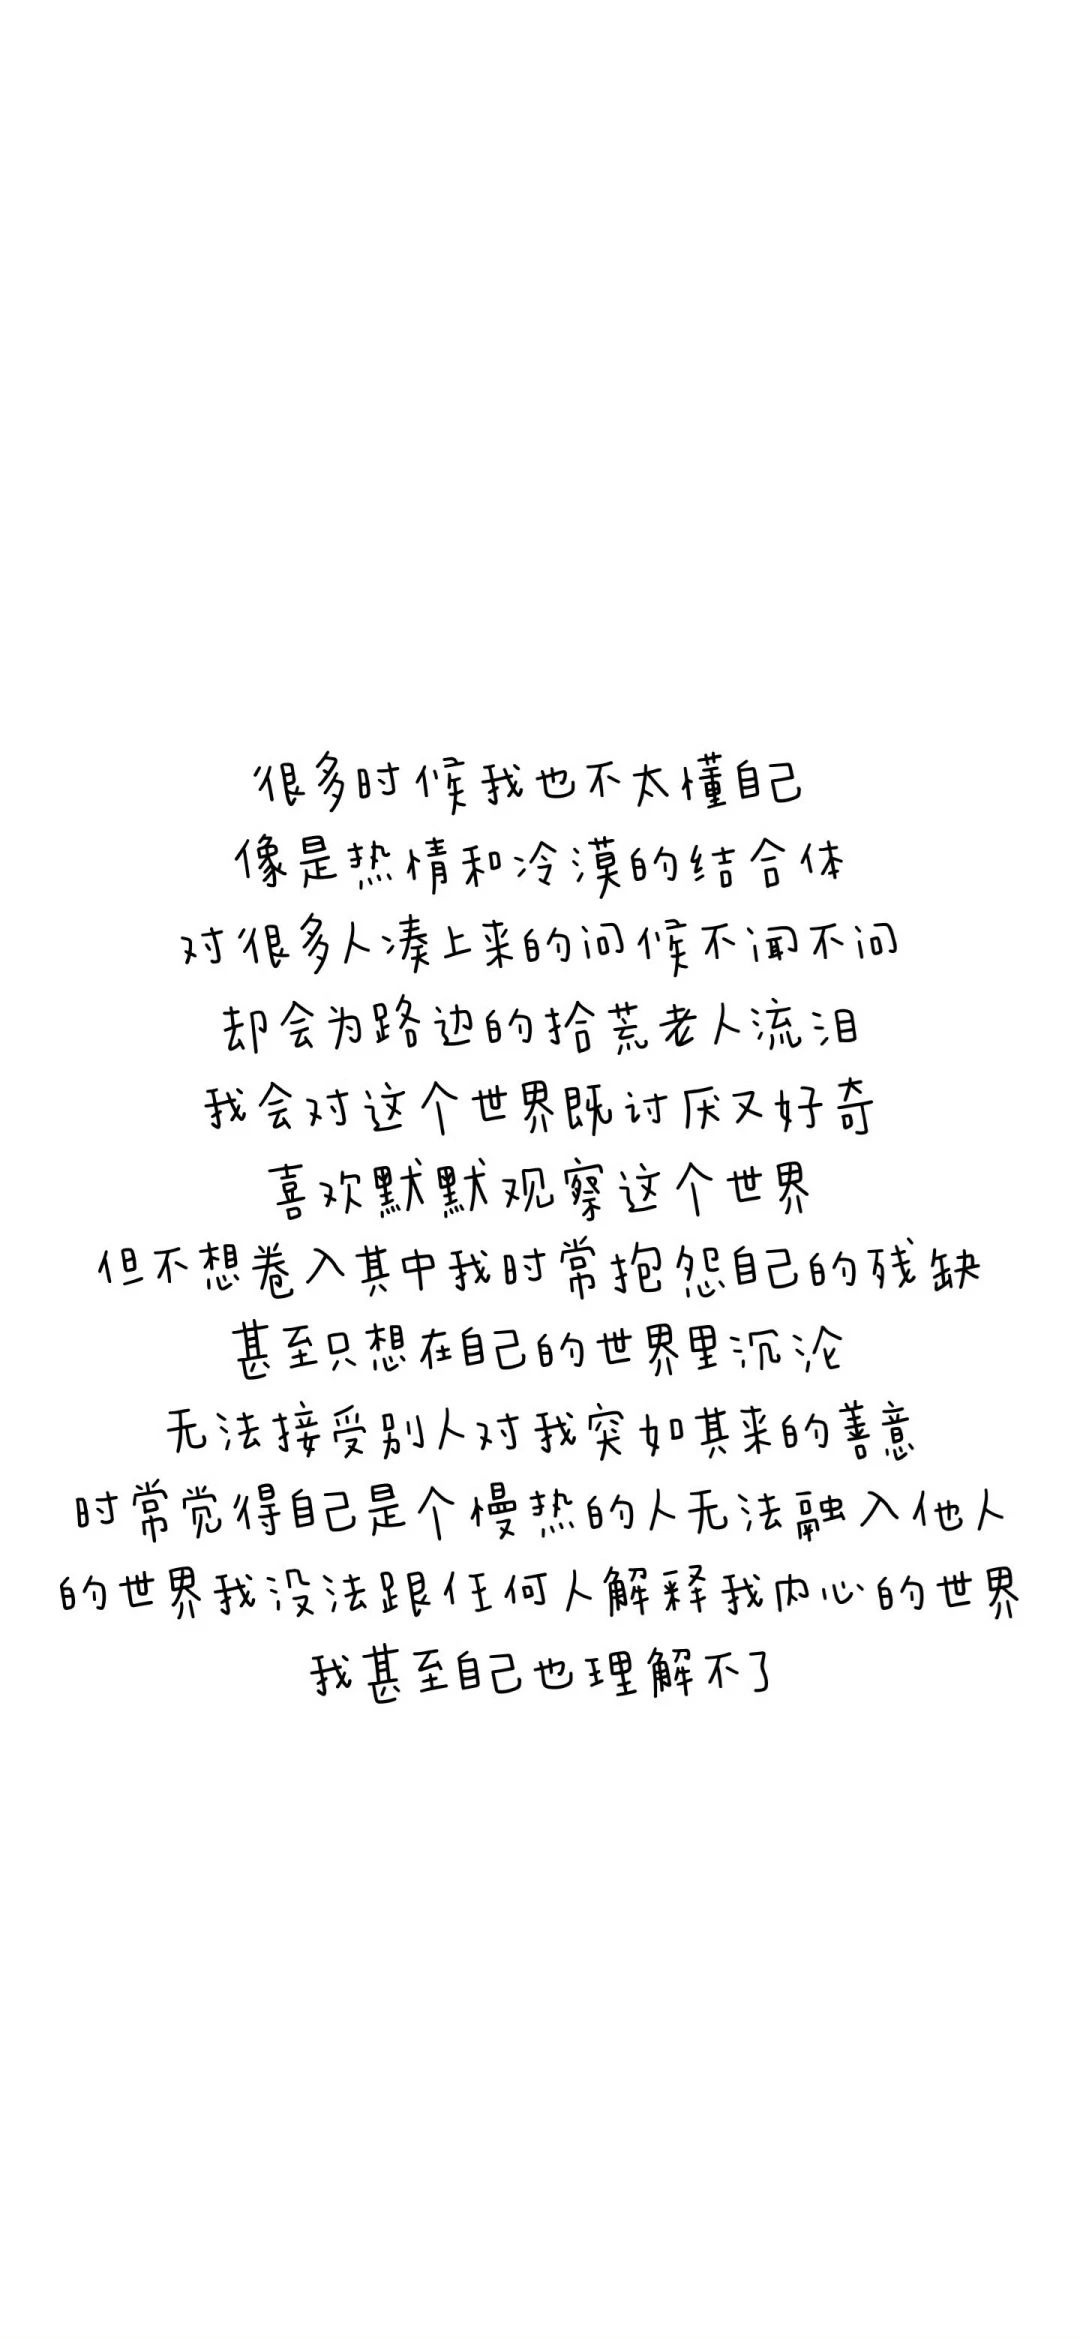 很多时候我也不太懂自己
像是热情和冷漠的结合体
对很多人凑上来的问候不闻不问
却会为路边的拾荒老人流泪
我会对这个世界既讨厌又好奇
喜欢默默观察这个世界
但不想卷入其中我时常抱怨自己的残缺
甚至只想在自己的世界里沉沦
无法接受别人对我突如其来的善意
时常觉得自己是个慢热的人无法融入他人
的世界我没法跟任何人解释我内心的世界
我甚至自己也理解不了